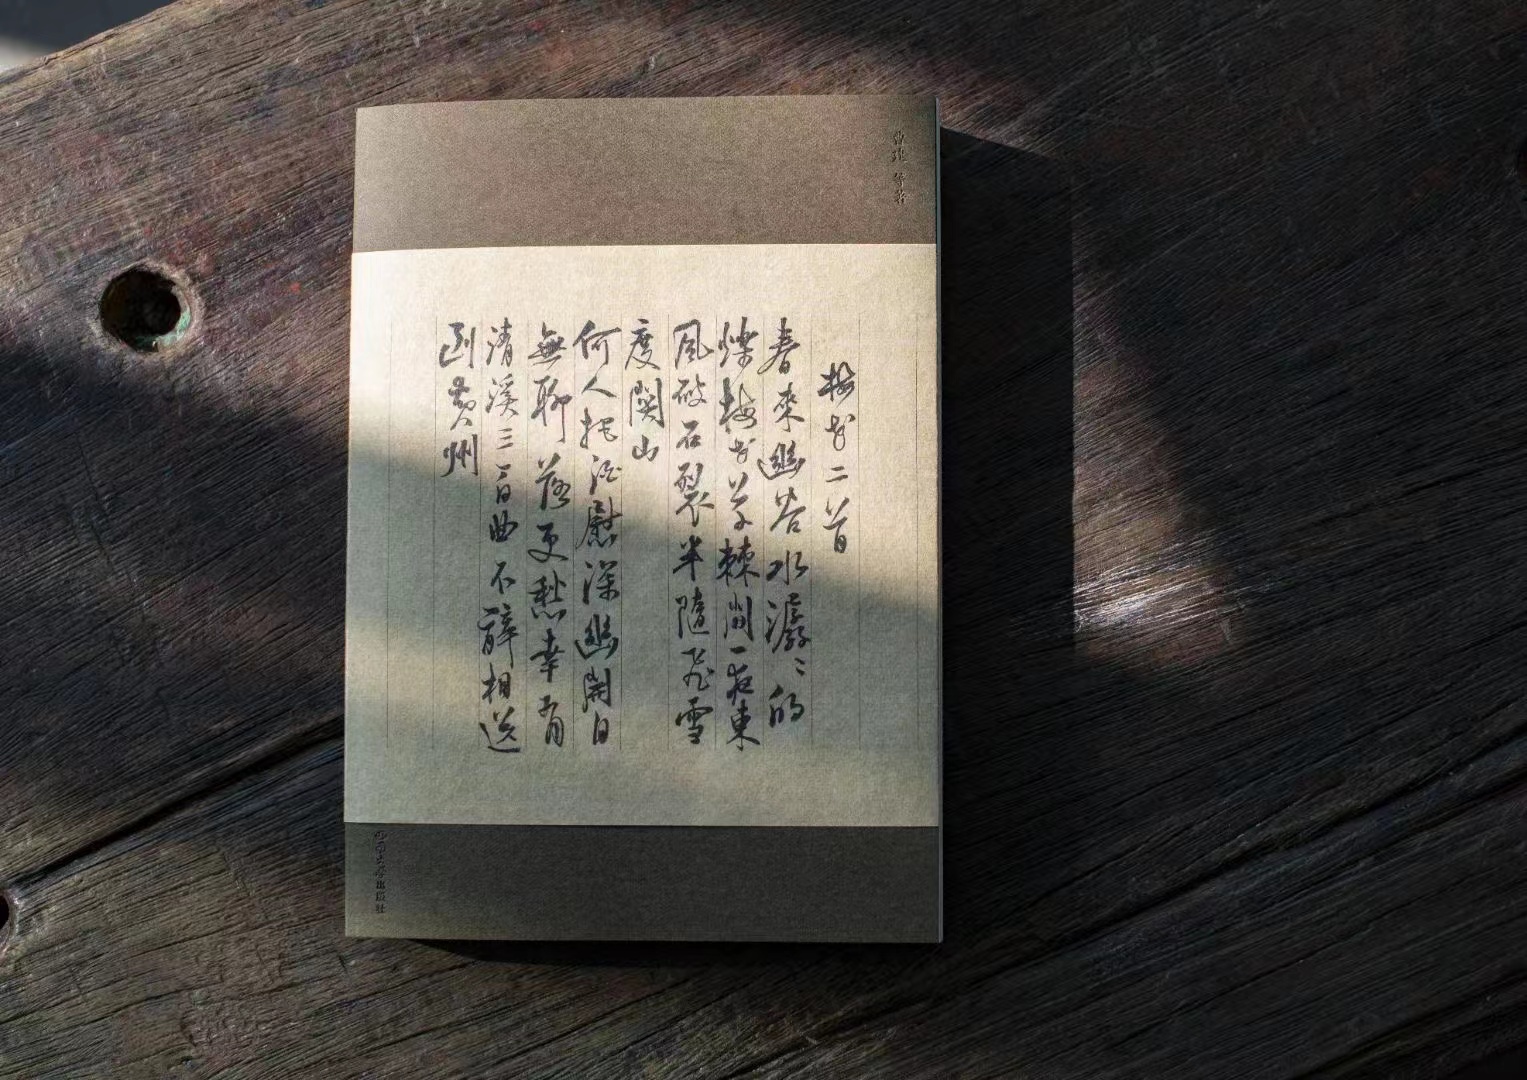 著
梅花二首
春來幽谷水潺〻的
爍梅花草棘間一夜東
風破石裂半隨飛雪
度關山
何人把酒慰深幽開自
無聊落更愁幸有
清溪三百曲不辭相送
到黃州
大学出版社